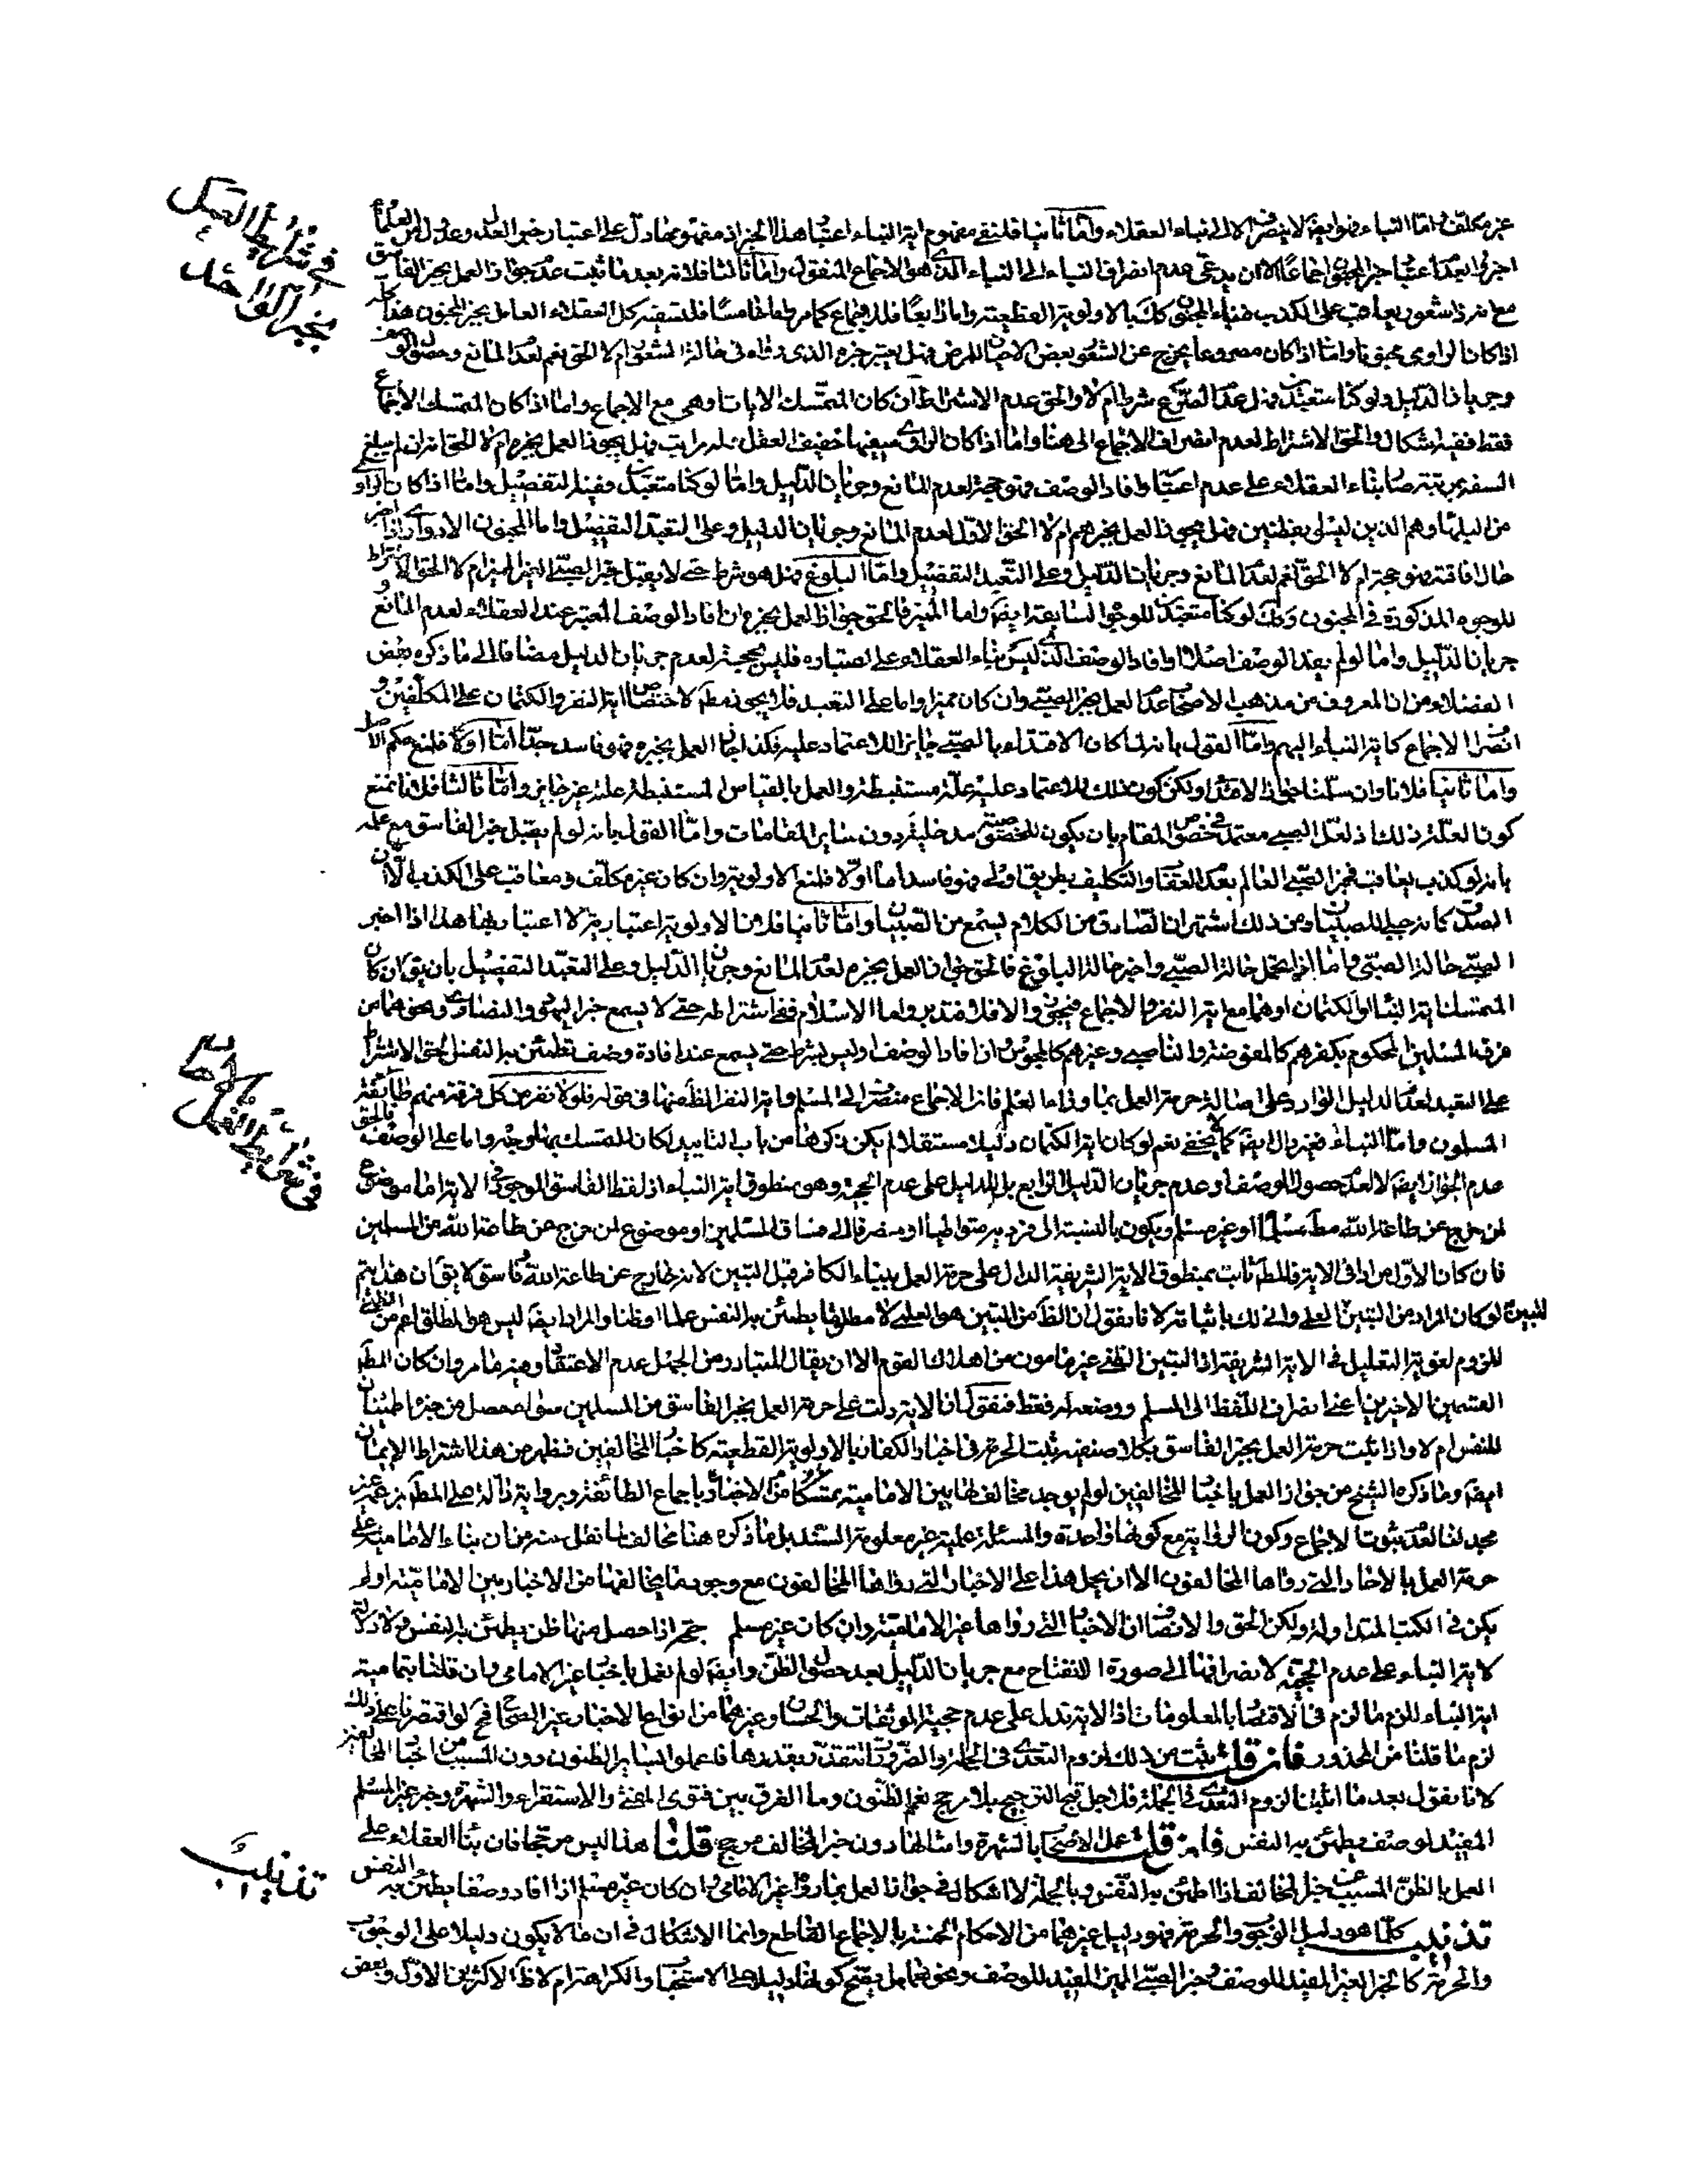 في شرائط العمل
بخبر الواحد
غير مكلف واما النباء فهو ايضا لا ينصرف الا الى نباء العقلاء واما ثانيا فلنفي مفهوم اية النباء اعتبار هذا الخبر اذ مفهومها دل على اعتبار خبر العدل وعدول من العلماء
اعتبار خبر المجنون اجماعا الا ان يدعى عدم انصراف النباء الى النباء الذي هو الاجماع المنقول واما ثالثا فلانه بعد ما ثبت عدم جواز العمل بخبر الفاسق
مع انه ذا شعور يعاقب على الكذب فنباء المجنون كك بالاولوية القطعية واما رابعا فللاجماع كما مر واما خامسا فلتسفيه كل العقلاء العامل بخبر المجنون هذا كله
اذا كان الراوي مجنونا واما اذا كان مصروعا يخرج عن الشعور بعض الاحيان للمرض فهل يعتبر خبره الذي رواه في حالة الشعور ام لا الحق نعم لعدم المانع وحصول الوصف
وجريان الدليل ولو كنا متعبدين فهل عدم الصرع شرط ام لا والحق عدم الاشتراط ان كان المتمسك الايات وهي مع الاجماع واما اذا كان المتمسك الاجماع
فقط ففيه اشكال والحق الاشتراط لعدم انصراف الاجماع الى هنا واما اذا كان الراوي سفيها خفيف العقل فله مراتب فهل يجوز العمل بخبره ام لا الحق انه ان لم يبلغ
السفه مرتبة صار بناء العقلاء على عدم اعتباره وافاد الوصف فهو حجة لعدم المانع وجريان الدليل واما لو كنا متعبدين ففيه التفصيل واما اذا كان الراوي
من البلهاء وهم الذين ليسوا بفطنين فهل يجوز العمل بخبرهم ام لا الحق الاول لعدم المانع وجريان الدليل وعلى التعبد التفصيل واما المجنون الادواري اذا اخبر
حال افاقته فهو حجة ام لا الحق نعم لعدم المانع وجريان الدليل وعلى التعبد التفصيل واما البلوغ فهل هو شرط حتى لا يقبل خبر الصبي الغير المميز ام لا الحق الاشتراط
للوجوه المذكورة في المجنون وكذلك لو كنا متعبدين للوجوه السابقة ايضا واما المميز فالحق جواز العمل بخبره ان افاد الوصف المعتبر عند العقلاء لعدم المانع و
جريان الدليل واما لو لم يفد الوصف اصلا او افاد الوصف الذي ليس بناء العقلاء على اعتباره فليس بحجة لعدم جريان الدليل مضافا الى ما ذكره بعض
الفضلاء من ان المعروف من مذهب الاصحاب عدم العمل بخبر الصبي وان كان مميزا واما على التعبد فلا يجوز مطلقا لاختصاص اية النفر والكتمان على المكلفين و
انصراف الاجماع كاية النباء اليهم واما القول بانه لما كان الاقتداء بالصبي جايزا للاعتماد عليه فكذا جاز العمل بخبره فهو فاسد جدا اما اولا فلمنع حكم الاصل
واما ثانيا فلانا وان سلمنا جواز الاقتداء ولكن كون ذلك للاعتماد عليه علة مستنبطة والعمل بالقياس المستنبطة علته غير جايز واما ثالثا فلانا نمنع
كون العلة ذلك اذ لعل الصبي معتمد في خصوص المقام بان يكون للخصوصية مدخلية دون ساير المقامات واما القول بانه لو لم يقبل خبر الفاسق مع علمه
بانه لو كذب يعاقب فخبر الصبي العالم بعدم العقاب والتكليف بطريق اولى فهو فاسد اما اولا فلمنع الاولوية وان كان غير مكلف ومعاقب على الكذب الا ان
الصدق كانه جبلي للصبيان ومن ذلك اشتهر ان الصادق من الكلام يسمع من الصبيان واما ثانيا فلان الاولوية اعتبارية لا اعتبار بها هذا اذا اخبر
الصبي حالة الصبي واما اذا تحمل حالة الصبي واخبر حالة البلوغ فالحق جواز العمل بخبره لعدم المانع وجريان الدليل وعلى التعبد التفصيل بان يق ان كان
المتمسك اية النباء او الكتمان او هما مع اية النفر والاجماع فيجوز والا فلا فتدبر واما الاسلام ففي اشتراطه حتى لا يسمع خبر اليهود والنصارى ونحوهما من
فرق المسلمين المحكوم بكفرهم كالمفوضة والناصبي وغيرهم كالمجوس وان افاد الوصف او ليس بشرط حتى يسمع عند افادة وصف تطمئن به النفس الحق الاشتراط
على التعبد لعدم الدليل الوارد على اصالة حرمة العمل بما وراء العلم فان الاجماع منصرف الى المسلم واية النفر الظاهر منها في قوله فلولا نفر من كل فرقة منهم طائفة
المسلمون واما النباء فخبر بال ايضا كما لا يخفى نعم لو كان اية الكتمان دليلا مستقلا لم يكن ذكرها من باب التاييد لكان للتمسك بها وجه واما على الوصف فالحق
عدم الجواز ايضا لا لعدم حصول الوصف او عدم جريان الدليل الرابع بل للدليل على عدم الحجية وهو منطوق اية النباء اذ لفظ الفاسق الموجود في الاية اما موضوع
لمن خرج عن طاعة الله مطلقا مسلما او غير مسلم ويكون بالنسبة الى فرديه متواطيا او منصرفا الى فساق المسلمين او موضوع لمن خرج عن طاعة الله من المسلمين
فان كان الاول مرادا في الاية فالمطلب ثابت بمنطوق الاية الشريفة الدال على حرمة العمل بنباء الكافر قبل التبين لانه خارج عن طاعة الله وفاسق لا يق ان هذا يتم
لو كان المراد من التبين العلمي واني لك باثباته لانا نقول ان الظاهر من التبين هو العلمي لا مطلق ما يطمئن به النفس علما او ظنا والمراد ايضا ليس هو المطلق اعم من التبين الظني
للزوم لغوية التعليل في الاية الشريفة اذ التبين الظني غير مامون من اهلاك القوم الا ان يقال المتبادر من الجهل عدم الاعتقاد وفيه ما مر وان كان المطلب
القسمين الاخيرين اعني انصراف اللفظ الى المسلم ووضعه له فقط فنقول ان الاية دلت على حرمة العمل بخبر الفاسق من المسلمين سواء حصل من خبره اطمينان
للنفس ام لا واذا ثبت حرمة العمل بخبر الفاسق بكلا صنفيه ثبت الحرمة في اخبار الكفار بالاولوية القطعية كاخبار المخالفين فظهر من هذا اشتراط الايمان
ايضا وما ذكره الشيخ من جواز العمل باخبار المخالفين لو لم يوجد مخالف لها بين الامامية متمسكا من الاخبار وباجماع الطائفة وبرواية دالة على المطلب غير
مجد لنا لعدم ثبوت الاجماع وكون الرواية مع كونها واحدة والمسئلة علمية غير معلومة السند بل ما ذكره هنا مخالف لما نقل عنه من ان بناء الامامية على
حرمة العمل بالاخبار التي رواها المخالفون الا ان يحمل هذا على الاخبار التي رواها المخالفون مع وجود ما يخالفها من الاخبار بين الامامية او لم
يكن في الكتب المتداولة ولكن الحق والانصاف ان الاخبار التي رواها غير الامامية وان كان غير مسلم حجة اذا حصل منها ظن يطمئن به النفس ولا دلالة
لاية النباء على عدم الحجية لانصرافها الى صورة الانفتاح مع جريان الدليل بعد حصول الظن وايضا لو لم نعمل باخبار غير الامامي وان قلنا بتمامية
اية النباء للزم ما لزم في الاقتصار بالمعلومات اذ الاية تدل على عدم حجية الموثقات والحسان وغيرهما من انواع الاخبار غير الصحاح فح لو اقتصرنا على ذلك
لزم ما قلنا من المحذور فان قلت يثبت من ذلك لزوم التعدي في الجملة والضرورة تتقدر بقدرها فاعملوا بساير الظنون دون المسبب من اخبار المخالفين
لانا نقول بعد ما اثبتنا لزوم التعدي في الجملة فلاجل قبح الترجيح بلا مرجح نعم الظنون وما الفرق بين فتوى المفتي والاستقراء والشهرة وخبر غير المسلم
المفيد لوصف يطمئن به النفس فان قلت عمل الاصحاب بالشهرة وامثالها دون خبر المخالف مرجح قلنا هذا ليس مرجحا فان بناء العقلاء على
العمل بالظن المسبب عن خبر المخالف اذا اطمئن به النفس وبالجملة لا اشكال في جواز العمل بما رواه غير الامامي وان كان غير مسلم اذا افاد وصفا يطمئن به النفس
تذنيب كلما هو دليل الوجوب والحرمة فهو دليل غيرهما من الاحكام الخمسة بالاجماع القاطع وانما الاشكال في ان ما لا يكون دليلا على الوجوب
والحرمة كالخبر الغير المفيد للوصف وخبر الصبي المميز المفيد للوصف ونحوهما هل يصح كونها دليلا على الاستحباب والكراهة ام لا ظاهر الاكثرين الاول وبعض
في شرائط العمل
تذنيب